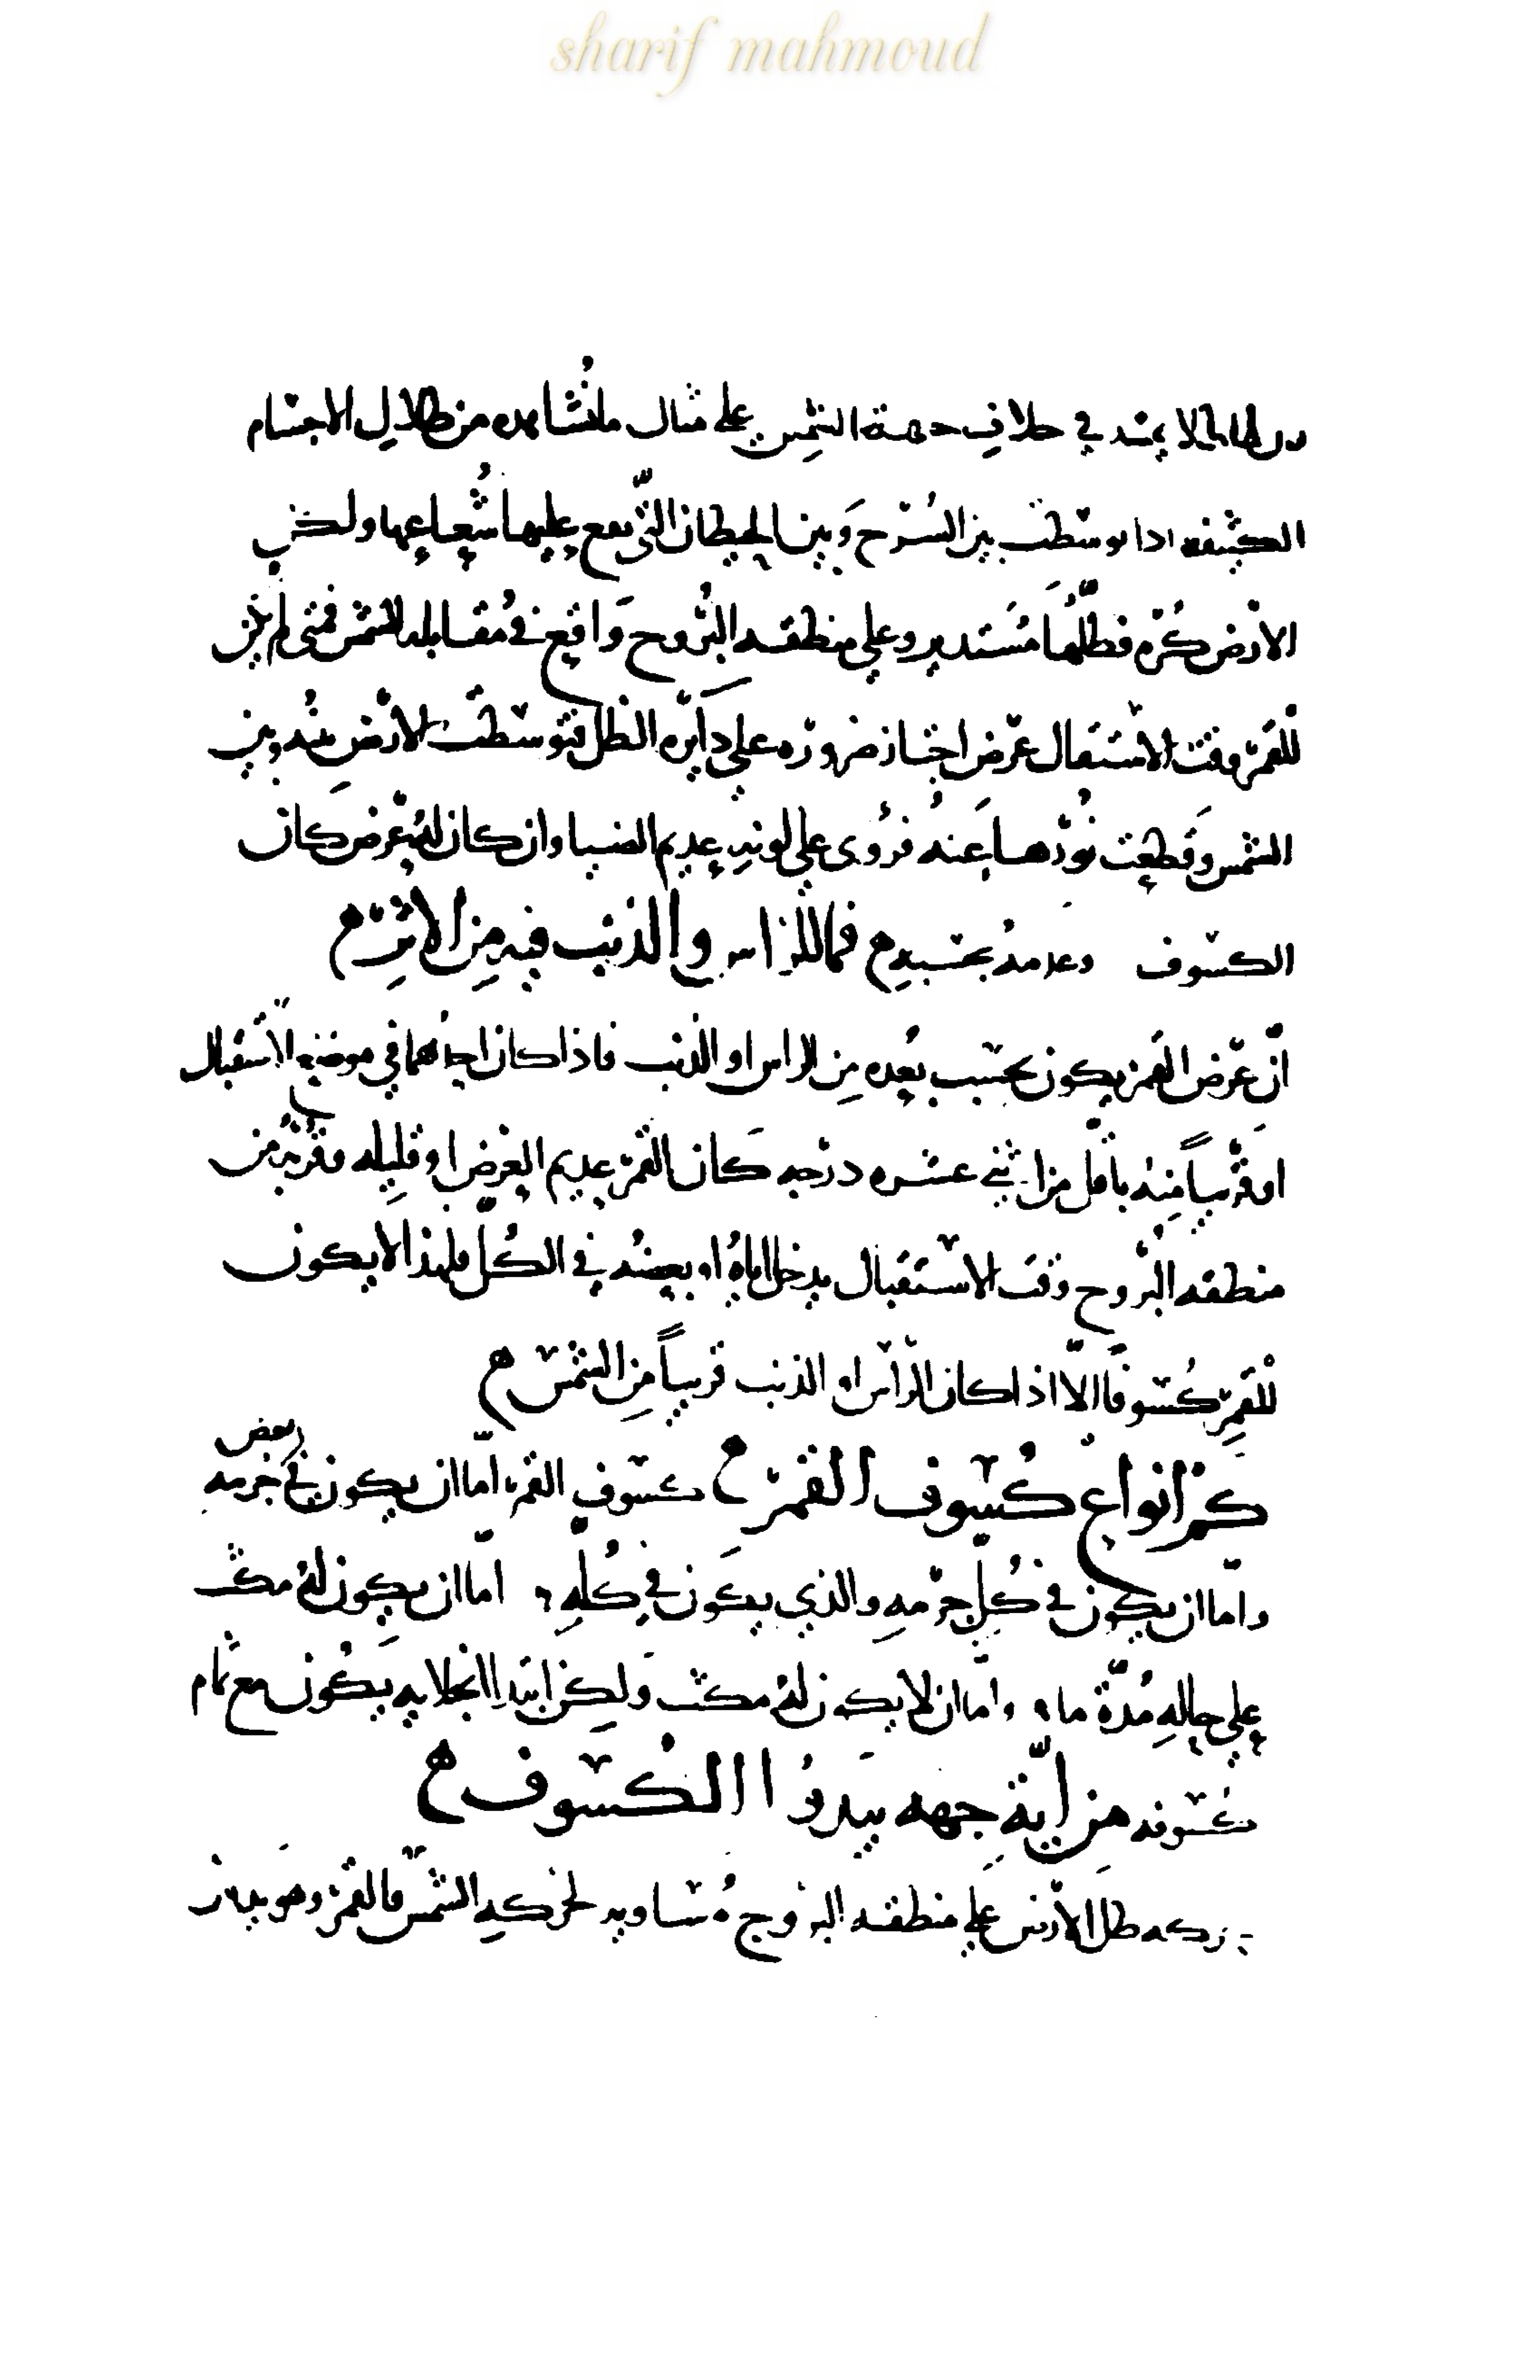 sharif mahmoud
لها ظلا يمتد في خلاف جهة الشمس على مثال ما نشاهده من ظلال الاجسام
الكثيفه اذا توسطت بين السرج وبين الحيطان التي يقع عليها شعاعها ولكن
الارض كره فظلها مستدير وعلى منطقه البروح واقع في مقابله الشمس فمتى لم يكن
للقمر وقت الاستقبال عرض اجتاز ضروره على دايره الظل فتوسطت الارض بينه وبين
الشمس وقطعت نورها عنه فرؤى على لونه عديم الضيا وان كان له عرض كان
الكسوف وعدمه بحسبه فما للراس والذنب فيه من الاثر
ان عرض القمر يكون بحسب بعده من الراس او الذنب فاذا كان احدهما في موضع الاستقبال
او قريبا منه باقل من اثني عشره درجه كان القمر عديم العرض او قليله وقربه من
منطقه البروح وقت الاستقبال يدخل اياه او بعضه في الكل فلهذا لا يكون
للقمر كسوفا الا اذا كان الراس او الذنب قريبا من الشمس
كم انواع كسوف القمر كسوف القمر اما ان يكون في بعض جرمه
واما ان يكون في كل جرمه والذي يكون في كله اما ان يكون له مكث
على حاله مدة ما واما ان لا يكون له مكث ولكن ابتدا انجلايه يكون مع تمام
كسوفه من اية جهه يبدوا الكسوف
حركه ظل الارض على منطقه البروج مساويه لحركه الشمس فالقمر وهو